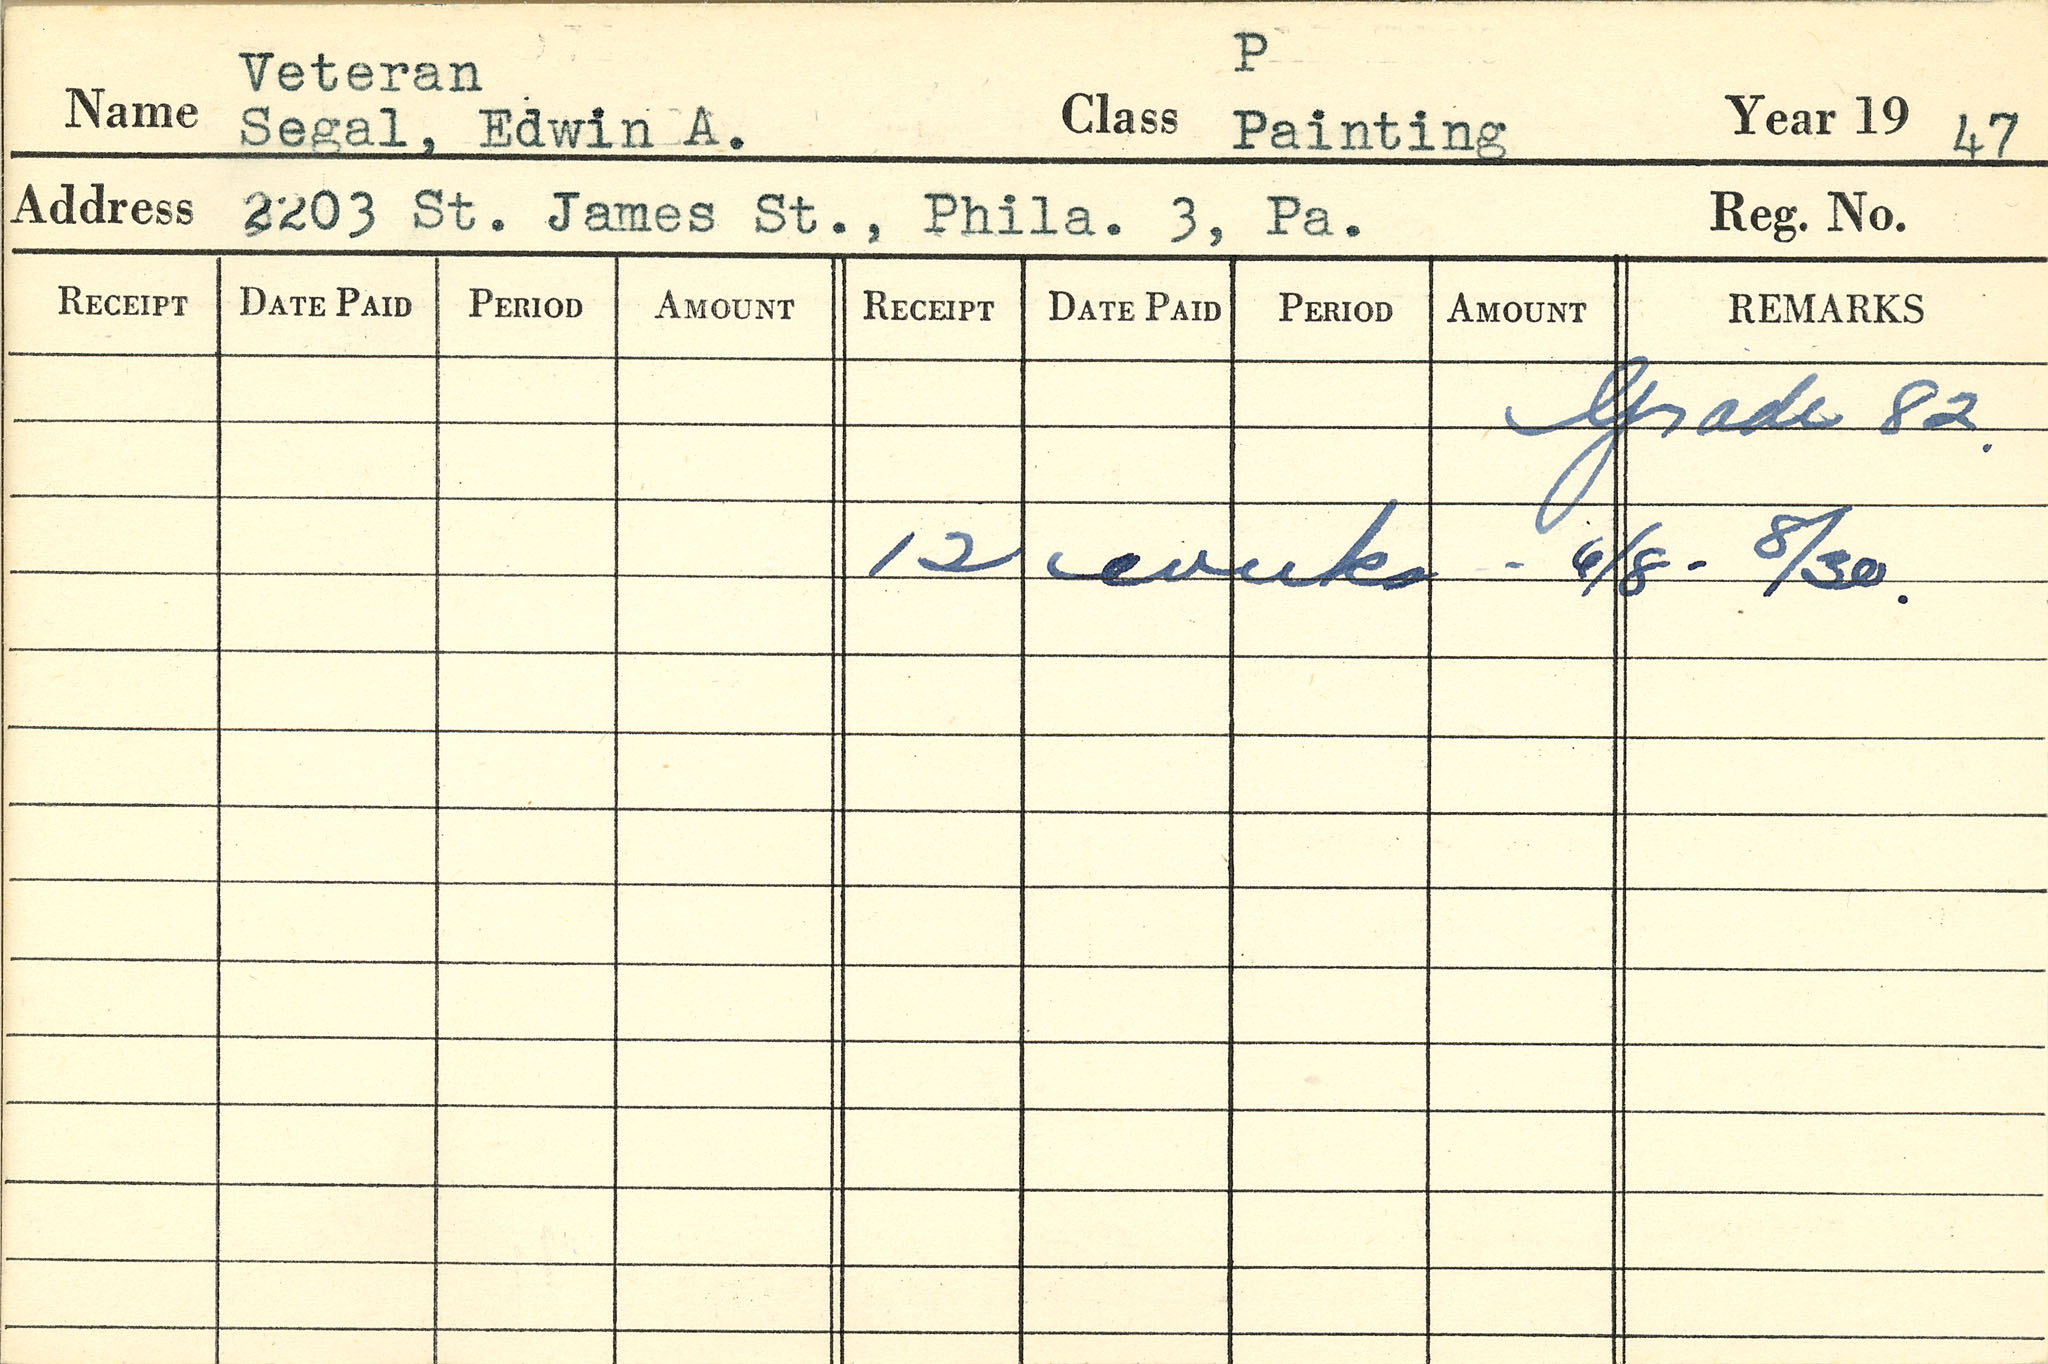 Veteran P
Name Segal, Edwin A. Class Painting Year 19 47
Address 2203 St. James St., Phila. 3, Pa. Reg. No.
RECEIPT DATE PAID PERIOD AMOUNT RECEIPT DATE PAID PERIOD AMOUNT REMARKS
Grade 82.
12 weeks - 6/8 - 8/30.